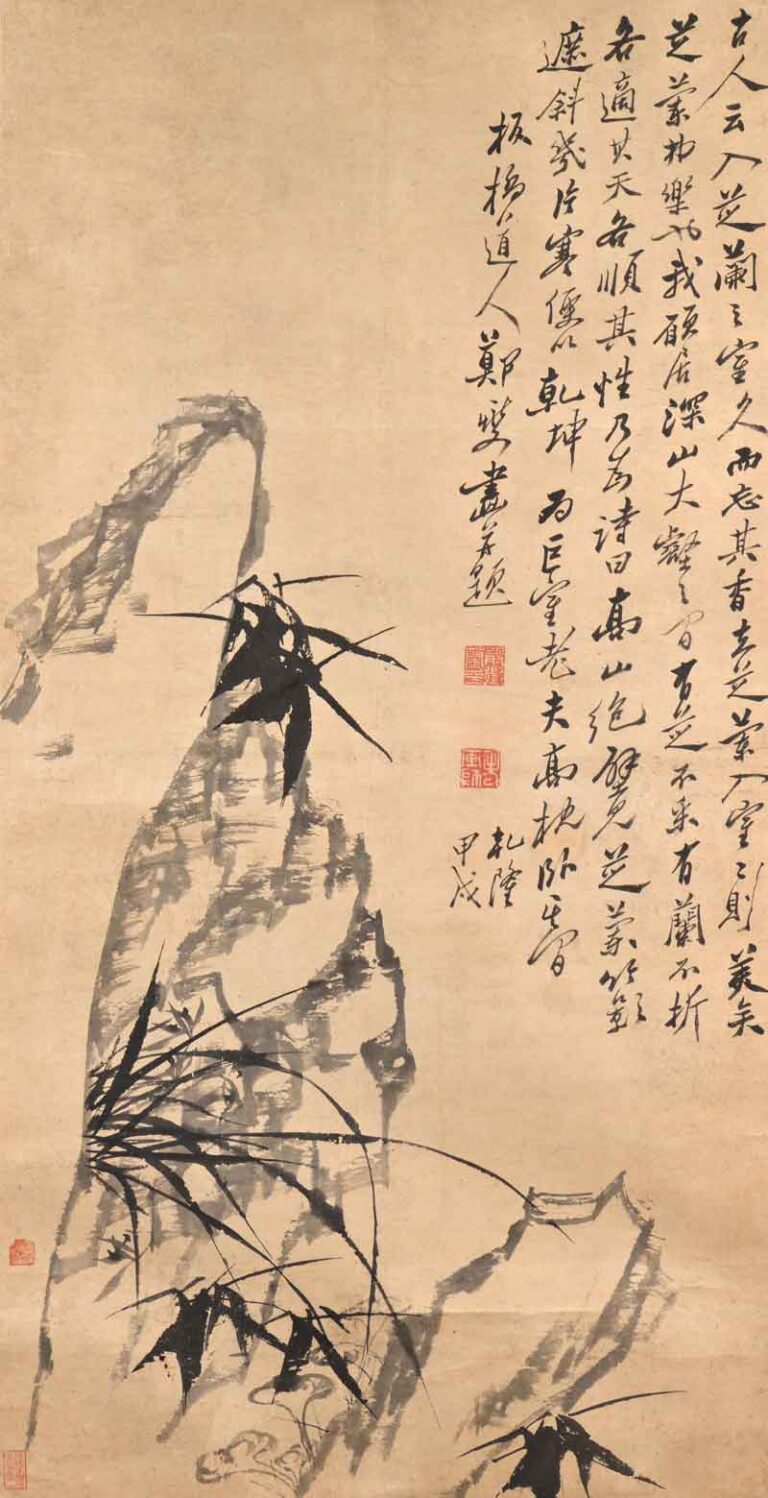 古人云入芝蘭之室久而忘其香夫芝蘭入室々則美矣
芝蘭樂也我願居深山大壑之間有芝不采有蘭不折
各適其天各順其性乃為詩曰高山絕壁見芝蘭竹影
遮斜幾片寒便以乾坤為巨室老夫高枕臥其間
板橋道人鄭燮畫并題
乾隆
甲戌